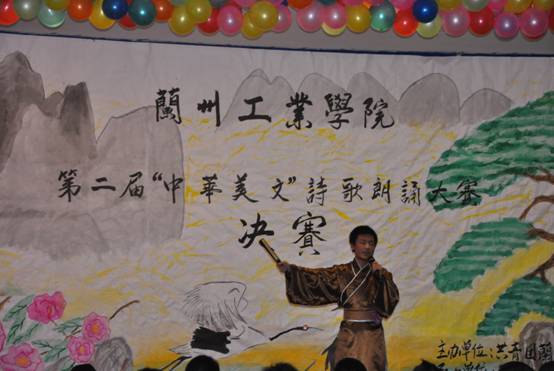 蘭州工業學院
第二届“中華美文”詩歌朗誦大赛
决賽
主办单位:共青团蘭